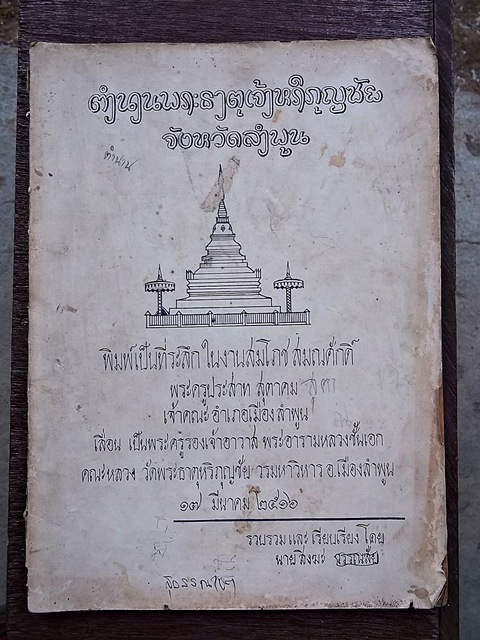 ตำนานพระธาตุเจ้าหริภุญชัย
จังหวัดลำพูน
ตำนาน
พิมพ์เป็นที่ระลึก ในงานสมโภช สมณศักดิ์
พระครูประสาท สุตาคม
เจ้าคณะ อำเภอเมืองลำพูน
เลื่อน เป็นพระครูรองเจ้าอาวาส พระอารามหลวงชั้นเอก
คณะหลวง วัดพระธาตุหริภุญชัย วรมหาวิหาร อ.เมืองลำพูน
๑๗ มีนาคม ๒๕๑๖
รวบรวม และ เรียบเรียง โดย
นายสิงฆะ วรรณสัย